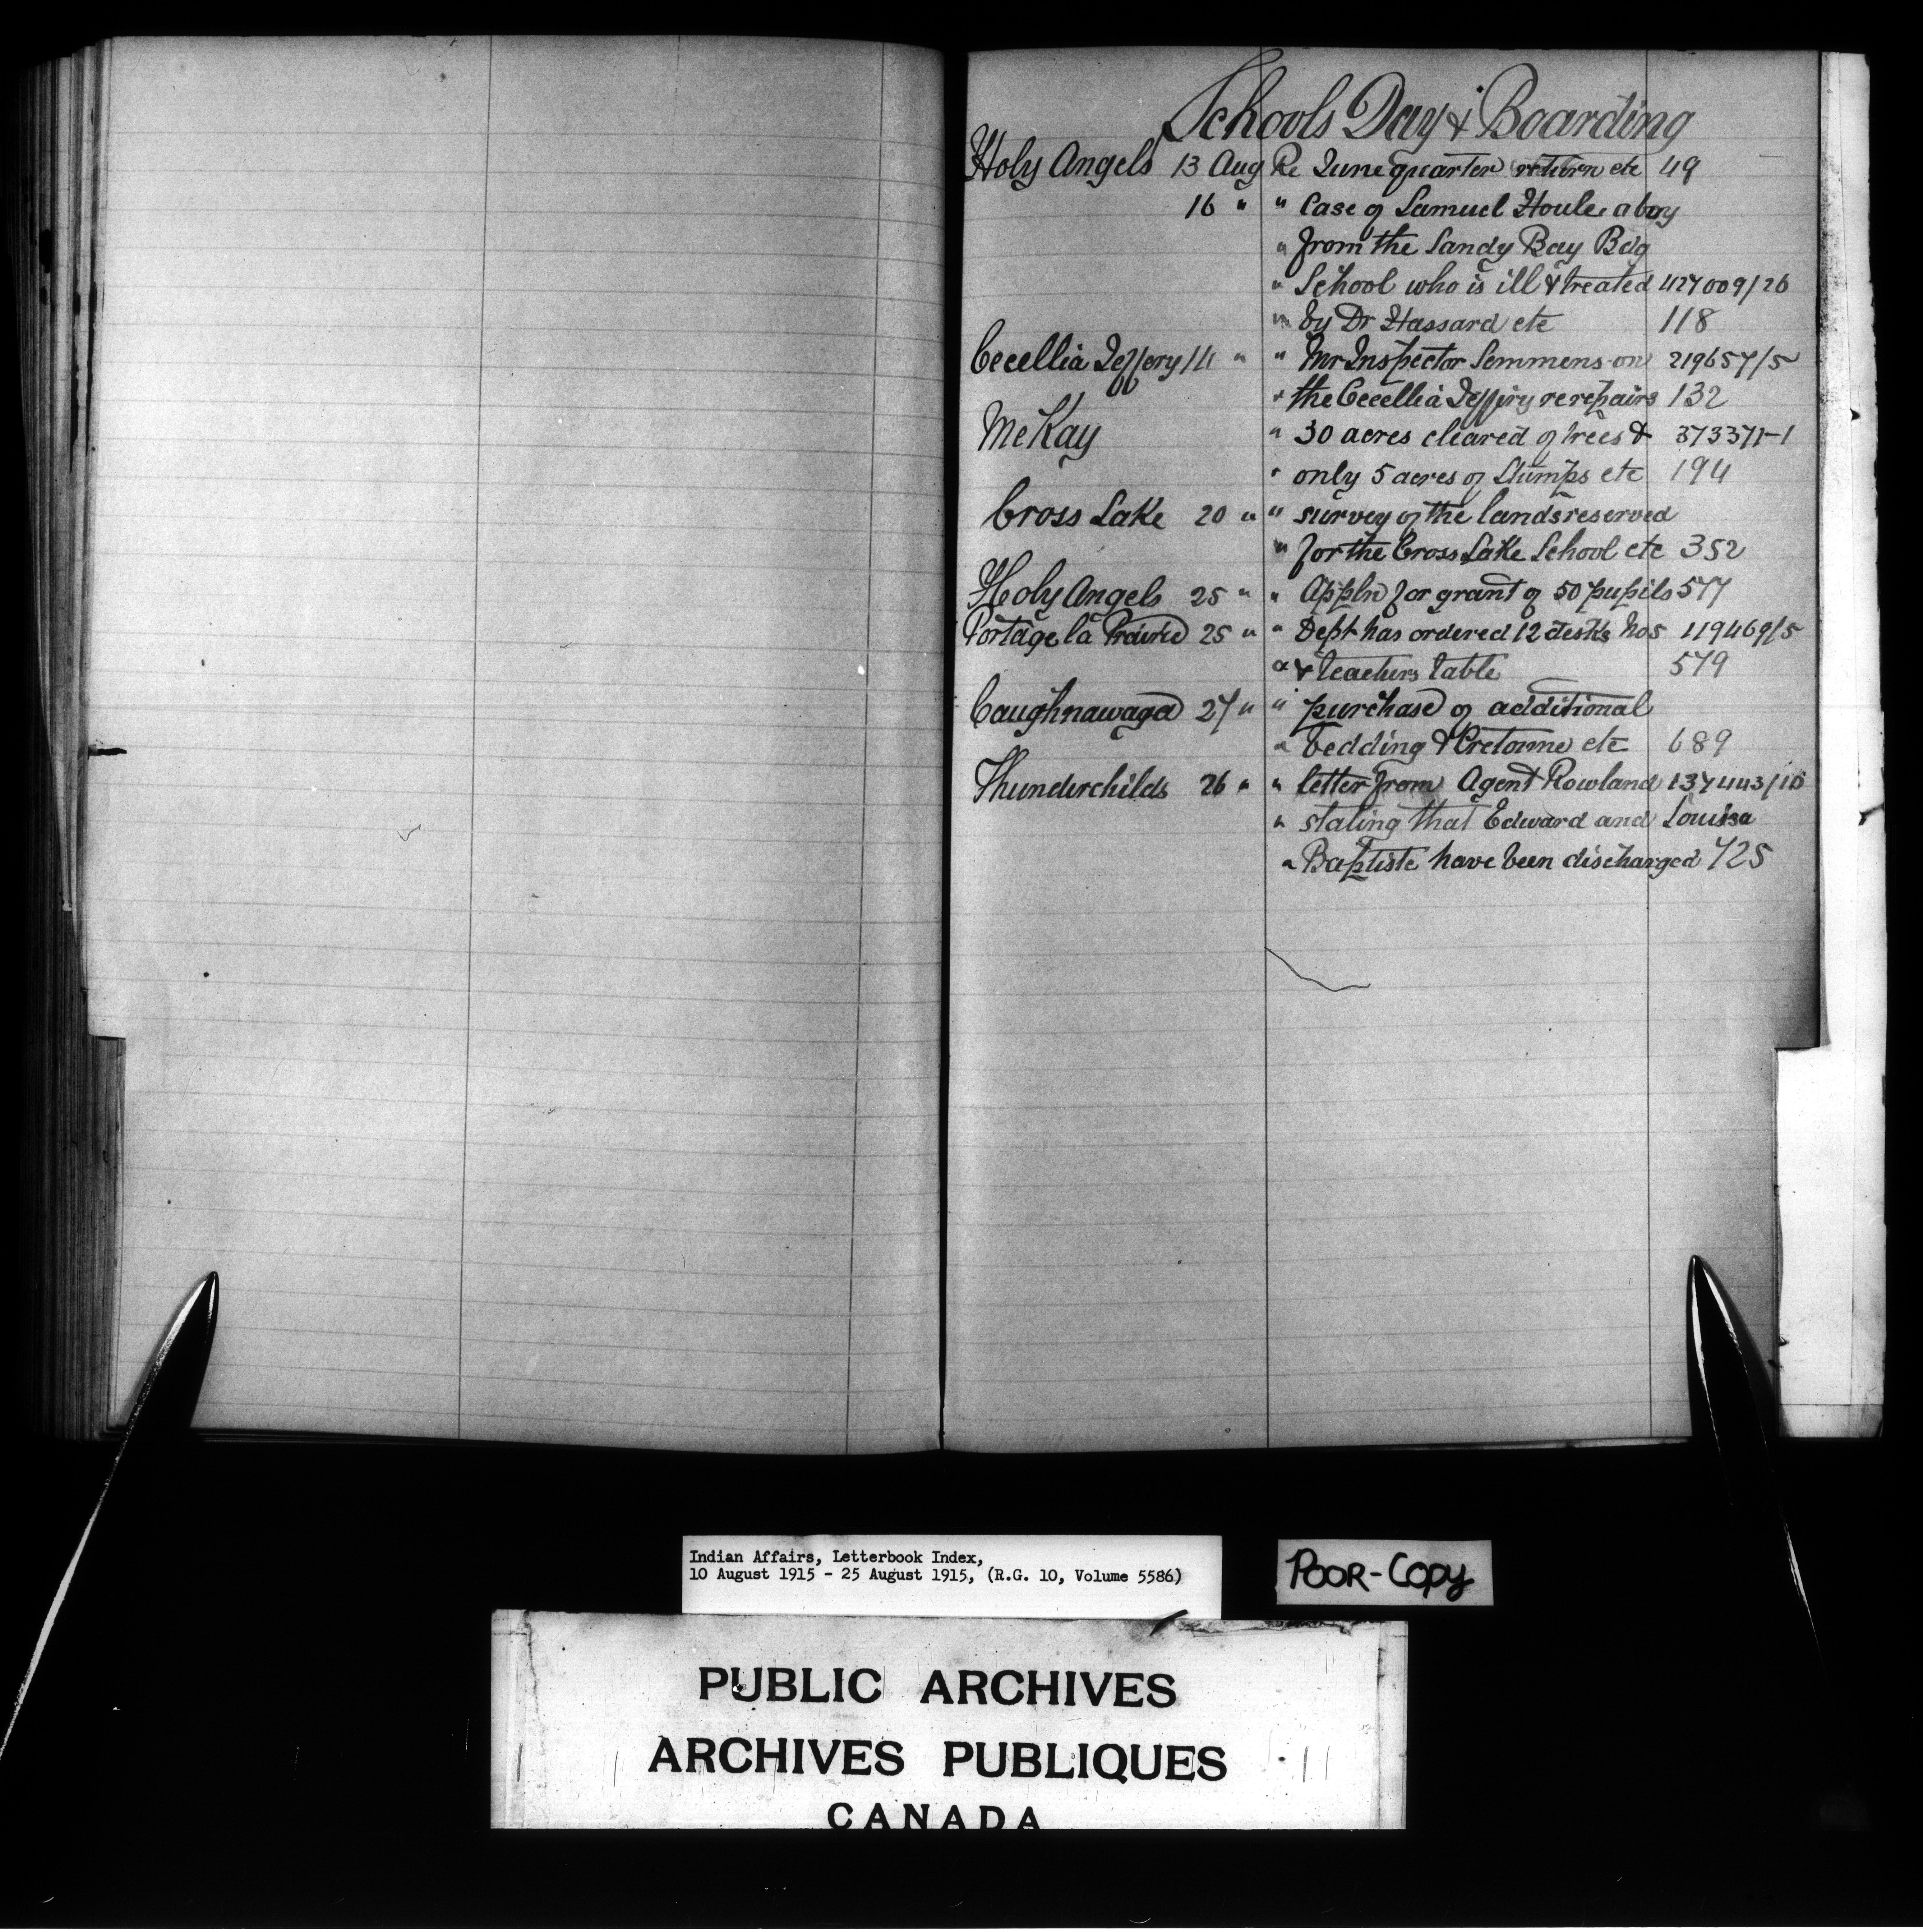 Schools Day & Boarding
Holy Angels 13 Aug Re June quarter return etc 49
16 " " Case of Samuel Houle a boy
" from the Sandy Bay Bdg
" School who is ill & treated 427009/26
" by Dr Hassard etc 118
Cecellia Jeffery 14 " " Mr Inspector Semmens on 219657/5
" the Cecellia Jeffery re repairs 132
McKay " 30 acres cleared of trees & 373371-1
" only 5 acres of Stumps etc 194
Cross Lake 20 " " survey of the lands reserved
" for the Cross Lake School etc 352
Holy Angels 25 " " Appln for grant of 50 pupils 577
Portage la Prairie 25 " " Dept has ordered 12 desks Nos 119469/5
" & teachers table 579
Caughnawaga 27 " " purchase of additional
" bedding & Cretonne etc 689
Thunderchilds 26 " " letter from Agent Rowland 137443/10
" stating that Edward and Louisa
" Baptiste have been discharged 725
Indian Affairs, Letterbook Index,
10 August 1915 - 25 August 1915, (R.G. 10, Volume 5586)
POOR-COPY
PUBLIC ARCHIVES
ARCHIVES PUBLIQUES
CANADA